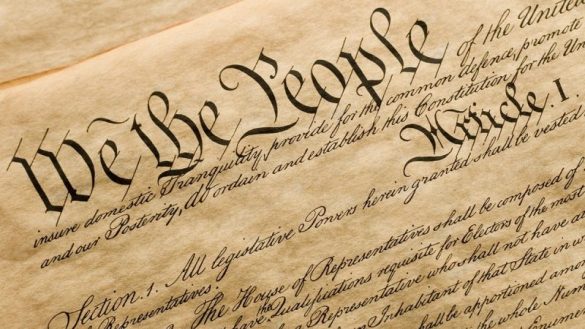 We the People of the United
insure domestic Tranquility, provide for the common defence, promote
and our Posterity, do ordain and establish this Constitution for the Un
Article. I.
Section. 1. All legislative Powers herein granted shall be vested
Representatives.
The House of Representatives shall be composed of
the Qualifications requisite for Electors of the most
a Representative who shall not have a
Inhabitant of that State in w
shall be apportioned amon
whole Num
Enume